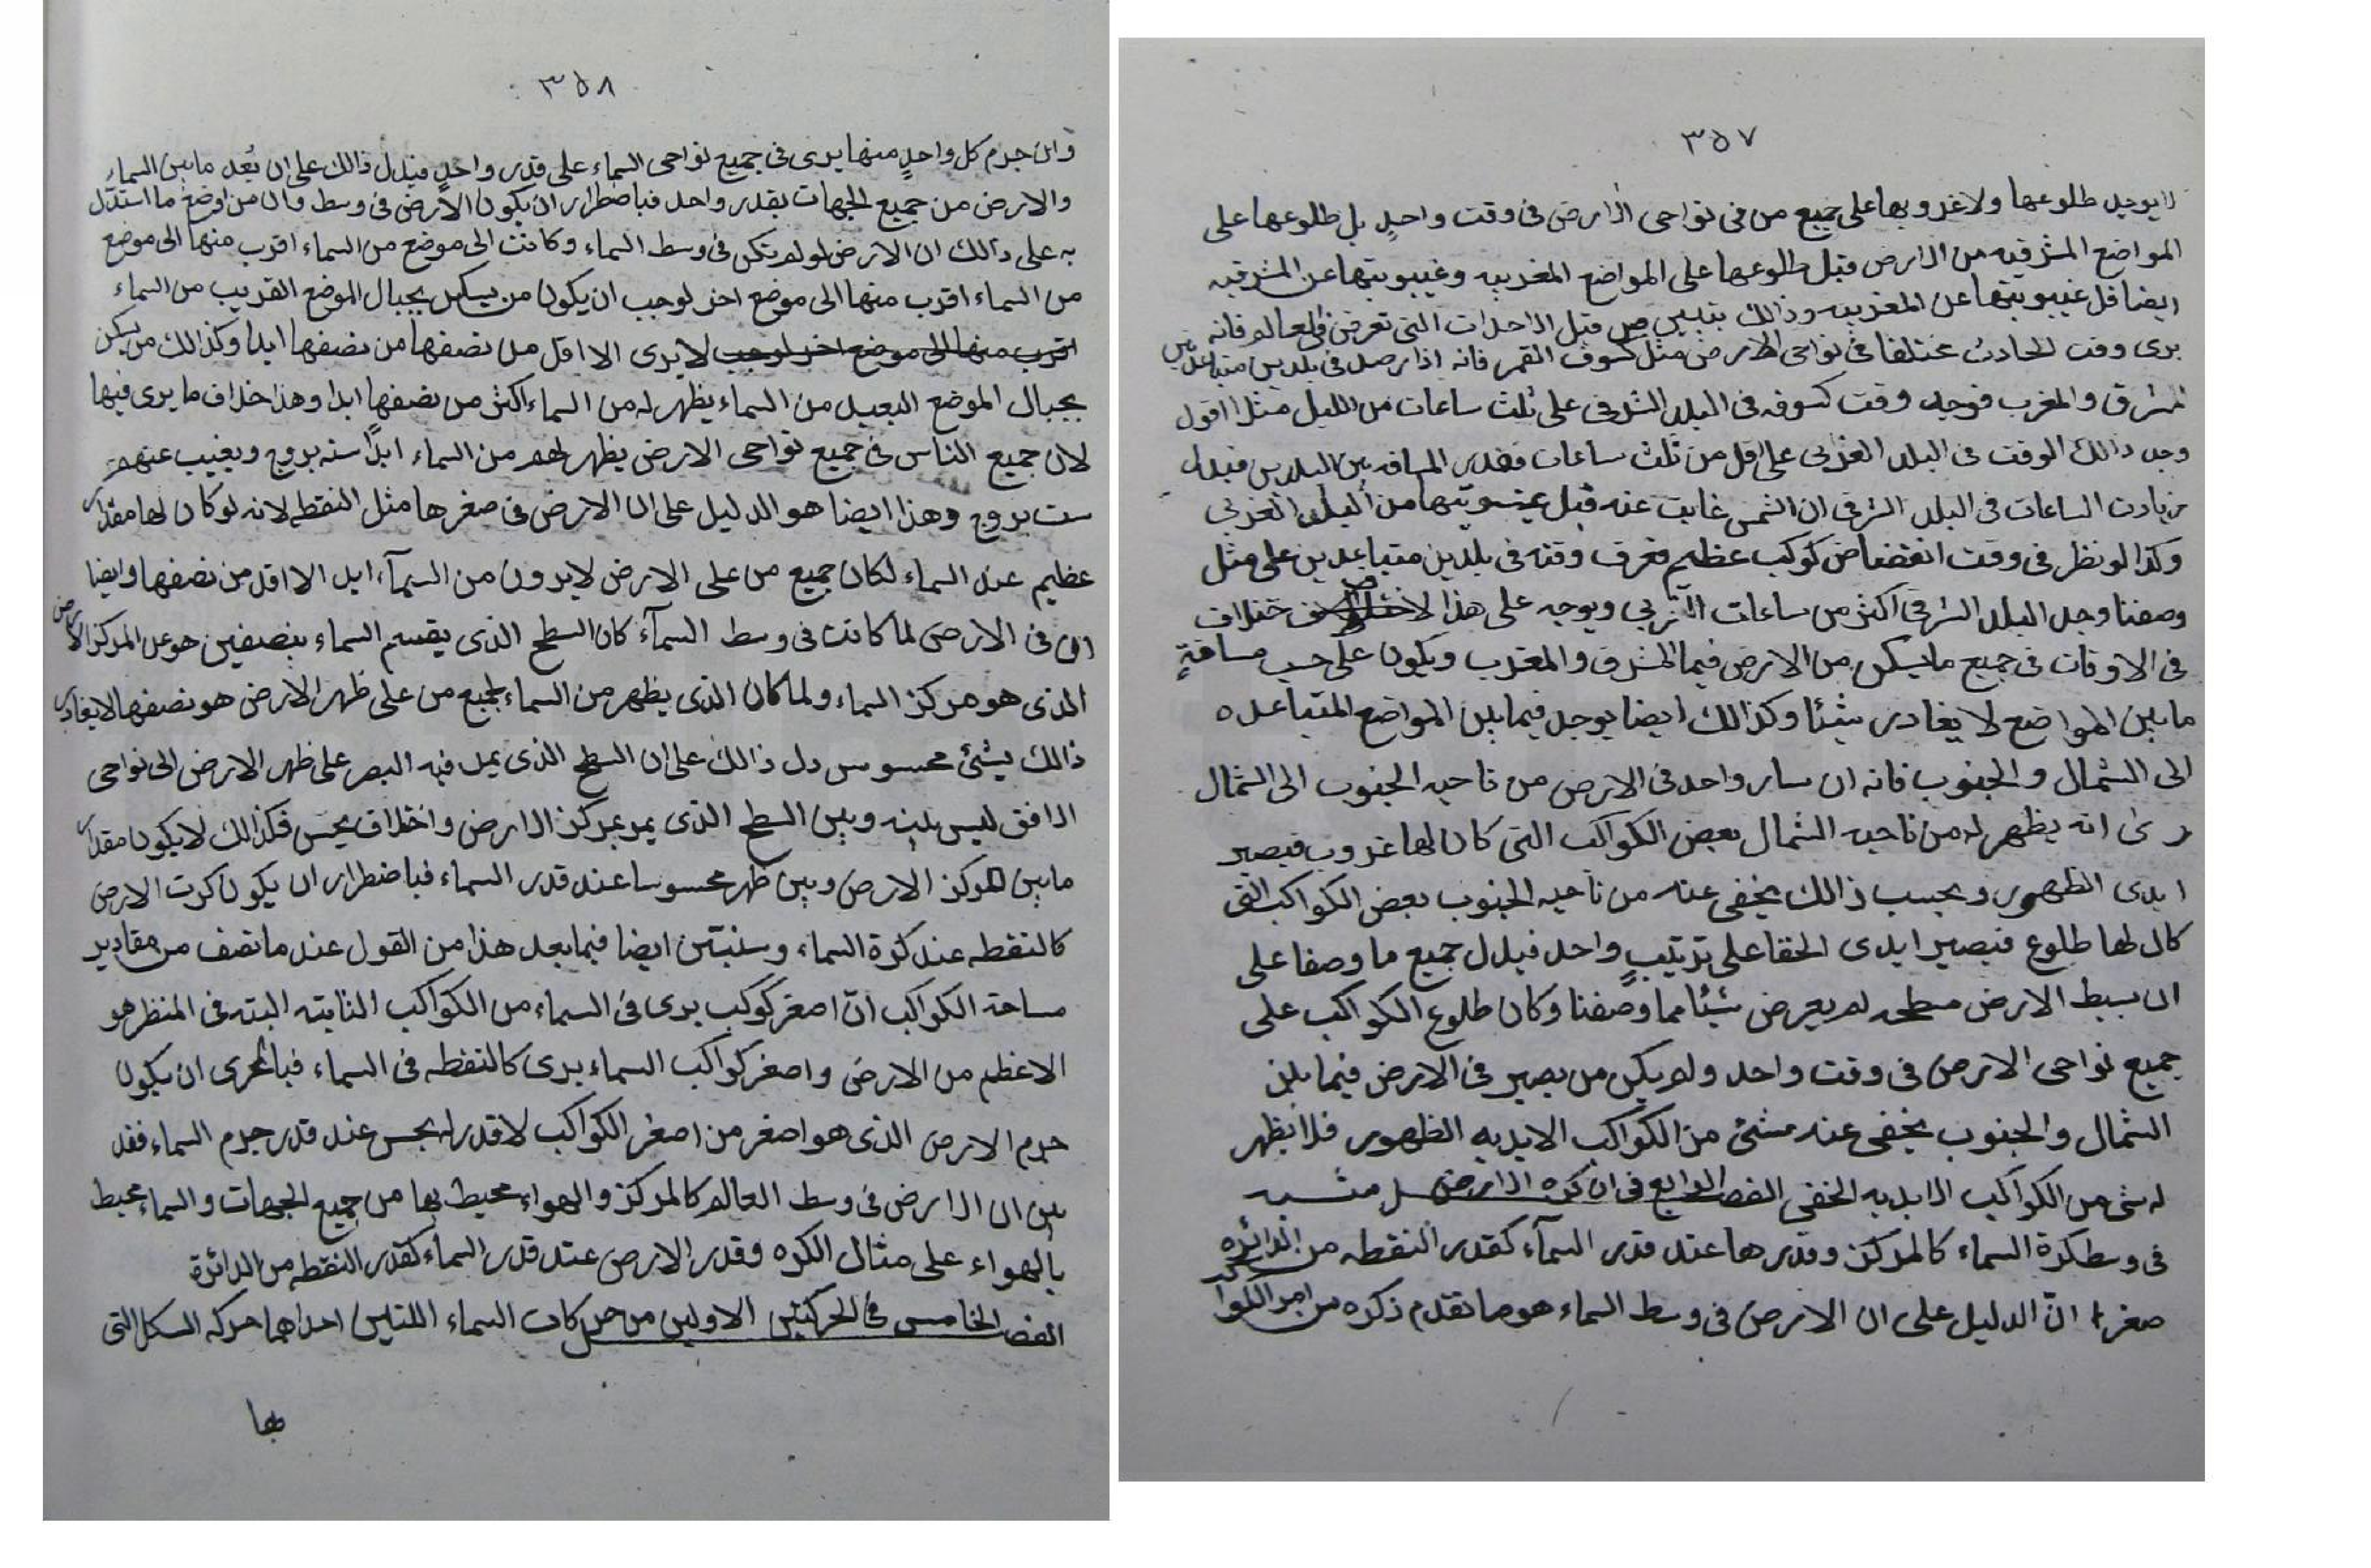 ٣٥٧
لا يوجد طلوعها ولا غروبها على جميع من فى نواحى الارض فى وقت واحدٍ بل طلوعها على
المواضع المشرقيه من الارض قبل طلوعها على المواضع المغربيه وغيبوبتها عن المشرقيه
ايضا قبل غيبوبتها عن المغربيه وذالك يتبين من قبل الاحداث التى تعرض فى العالم فانه
يرى وقت الحادث مختلفا فى نواحى الارض مثل كسوف القمر فانه اذا رصد فى بلدين متباعدين
المشرق والمغرب فوجد وقت كسوفه فى البلد الشرقى على ثلث ساعات من الليل مثلا اقول
وجد ذالك الوقت فى البلد الغربى على اقل من ثلث ساعات فقدر المسافه بين البلدين فيدل
زيادت الساعات فى البلد الشرقى ان الشمس غابت عنه قبل غيبوبتها من البلد الغربى
وكذا لو نظر فى وقت انقضاض كوكب عظيم فعرف وقته فى بلدين متباعدين على مثل
وصفنا وجد البلد الشرقى اكثر من ساعات الغربي ويوجد على هذا خلاف
فى الاوقات فى جميع ما يسكن من الارض فيما المشرق والمغرب ويكون على حسب مسافةٍ
ما بين المواضع لا يغادر شيئا وكذالك ايضا يوجد فيما بين المواضع المتباعده
الى الشمال والجنوب فانه ان سار واحد فى الارض من ناحيه الجنوب الى الشمال
رئ انه يظهر له من ناحيه الشمال بعض الكواكب التى كان لها غروب فيصير
ابدى الظهور وبحسب ذالك يخفى عنه من ناحيه الجنوب بعض الكواكب التى
كان لها طلوع فيصير ابدى الخفا على ترتيبٍ واحد فيدل جميع ما وصفا على
ان بسيط الارض مسطحه لم يعرض شيئا مما وصفنا وكان طلوع الكواكب على
جميع نواحى الارض فى وقت واحد ولم يكن من يصير فى الارض فيما بين
الشمال والجنوب يخفى عنه شئ من الكواكب الابديه الظهور فلا يظهر
له شئ من الكواكب الابديه الخفى الفصل الرابع فى ان كره الارض مثبته
فى وسط كرة السماء كالمركز وقدرها عند قدر السمآء كقدر النقطه من الدائره
صغرا انّ الدليل على ان الارض فى وسط السماء هو ما تقدم ذكره من امر الكواكب
٣٥٨
وان جرم كل واحدٍ منها يرى فى جميع نواحى السماء على قدر واحدٍ فيدل ذالك على ان بُعد ما بين السماء
والارض من جميع الجهات بقدر واحد فباضطرار ان يكون الارض فى وسط وان من اوضح ما استدل
به على ذالك ان الارض لو لم تكن فى وسط السماء وكانت الى موضع من السماء اقرب منها الى موضع
من السماء اقرب منها الى موضع اخر لوجب ان يكون من يسكن بجبال الموضع القريب من السماء
اقرب منها الى موضع اخر لوجب لا يرى الا اقل من نصفها من نصفها ابدا وكذالك من يسكن
بجبال الموضع البعيد من السماء يظهر له من السماء اكثر من نصفها ابدا وهذا خلاف ما يرى فيها
لان جميع الناس فى جميع نواحى الارض يظهر لهم من السماء ابدًا سته بروج ويغيب عنهم
ست بروج وهذا ايضا هو الدليل على ان الارض فى صغرها مثل النقطه لانه لو كان لها مقدار
عظيم عند السماء لكان جميع من على الارض لا يرون من السمآء ابدا الا اقل من نصفها وايضا
ان فى الارض لما كانت فى وسط السمآء كان السطح الذى يقسم السماء بنصفين هو على المركز الارض
الذى هو مركز السماء ولما كان الذى يظهر من السماء لجميع من على ظهر الارض هو نصفها لا يغادر
ذالك بشئ محسوس دل ذالك على ان السطح الذى يمد فيه البصر على ظهر الارض الى نواحى
الافق ليس بينه وبين السطح الذى يمر بمركز الارض واختلاف يحس فكذالك لا يكون مقدار
ما بين المركز الارض وبين ظهر محسوسا عند قدر السماء فباضطرار ان يكون كرت الارض
كالنقطه عند كرة السماء وسنبيّن ايضا فيما بعد هذا من القول عند ما نصف من مقادير
مساحة الكواكب انّ اصغر كوكب يرى فى السماء من الكواكب الثابته البته فى المنظر هو
الاعظم من الارض واصغر كواكب السماء يرى كالنقطه فى السماء فبالحرى ان يكون
جرم الارض الذى هو اصغر من اصغر الكواكب لا قدر له يحس عند قدر جرم السماء فقد
بين ان الارض فى وسط العالم كالمركز والهواء محيط بها من جميع الجهات والسماء محيط
بالهواء على مثال الكره وقدر الارض عند قدر السماء كقدر النقطه من الدائرة
الفصل الخامس فى الحركتين الاولين من حركات السماء اللتين احداهما حركه السكل التى
بها